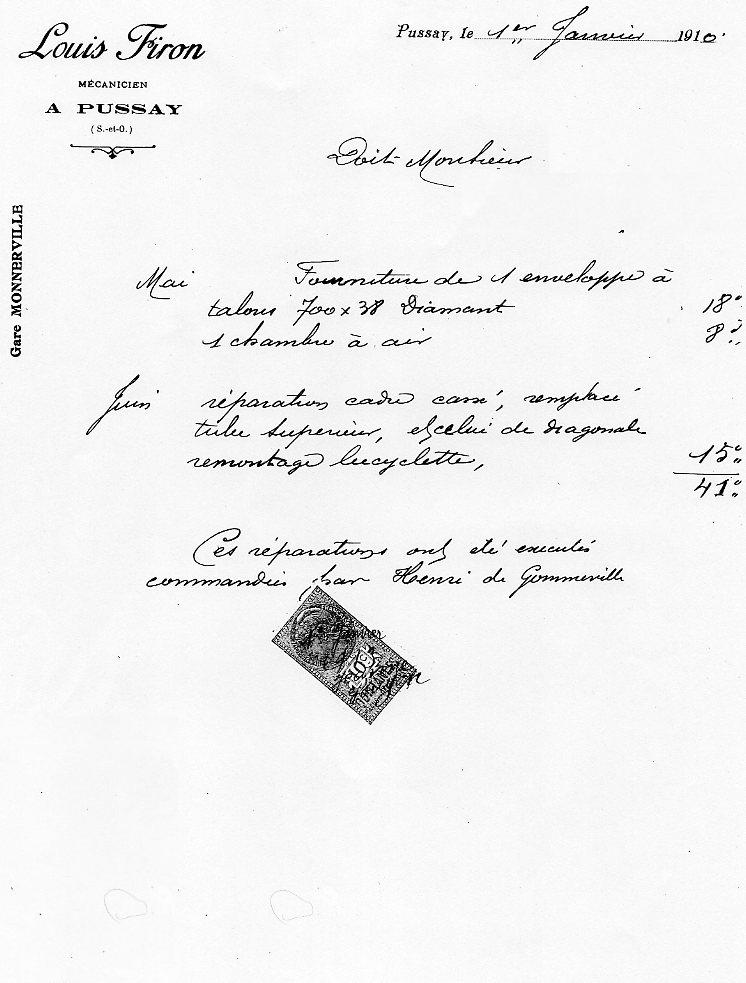 Louis Firon
MÉCANICIEN
A PUSSAY
(S.-et-O.)
Gare MONNERVILLE
Pussay, le 1er Janvier 1910
Doit Monsieur
Mai Fourniture de 1 enveloppe à
talons 700 x 38 Diamant 18"
1 chambre à air 8"
Juin réparation cadre cassé, remplacé
tube superieur, et celui de diagonale
remontage bicyclette, 15"
41"
Ces réparations ont été executés
commandées par Henri de Gommerville
1er Janvier
10c